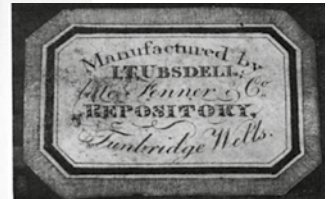 Manufactured by
I.T. UBSDELL,
late Fenner & Co.
REPOSITORY,
Tunbridge Wells.